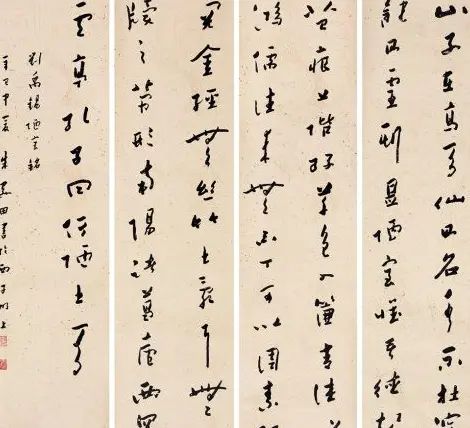 山不在高有仙則名水不在深
則靈斯是陋室惟吾德馨
苔痕上階綠草色入簾青
鴻儒往来無白丁可以調素
閱金經無絲竹之亂耳無
牘之勞形南陽諸葛廬西蜀
雲亭孔子曰何陋之有
劉禹錫陋室銘
朱關田書於西子湖上